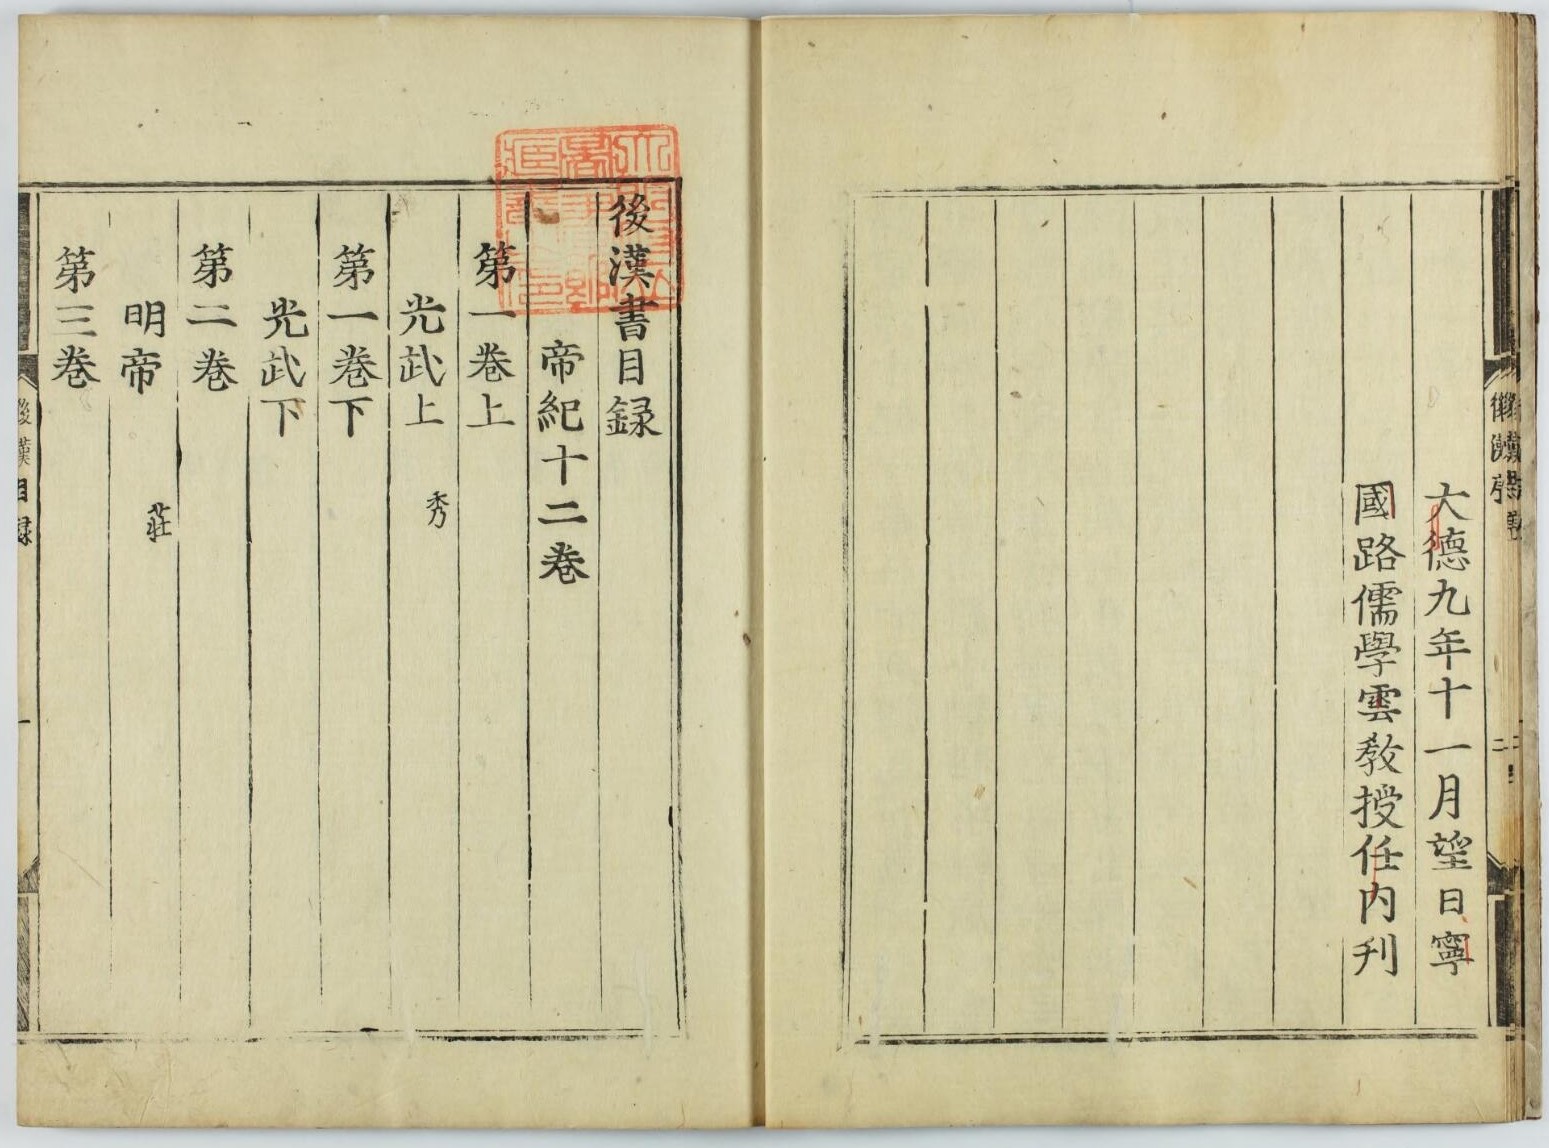 大德九年十一月望日寧
國路儒學雲教授任內刋
後漢書目録
帝紀十二卷
第一卷上
光武上 秀
第一卷下
光武下
第二卷
明帝 莊
第三卷
後漢目録
一